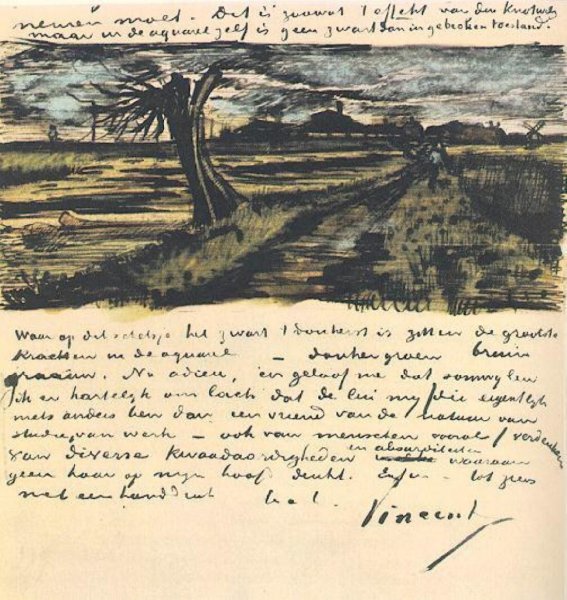 neuren moet. Dit is zoowat 't effekt van den knotwilg
maar in de aquarel zelf is geen zwart dan in gebroken toestand.
Waar op dit schetsje het zwart 't donkerst is zitten de grootste
krachten in de aquarel — donkergroen bruin
graauw. Nu adieu, en geloof me dat somwylen
ik er hartelyk om lach dat de lui my /die eigentlyk
niets anders ben dan een vriend van de natuur van
studie, van werk — ook van menschen vooral/ verdenken
van diverse kwaadaardigheden en absurditeiten waaraan
geen haar op myn hoofd denkt. Enfin — tot ziens
met een handdruk t. à t.
Vincent